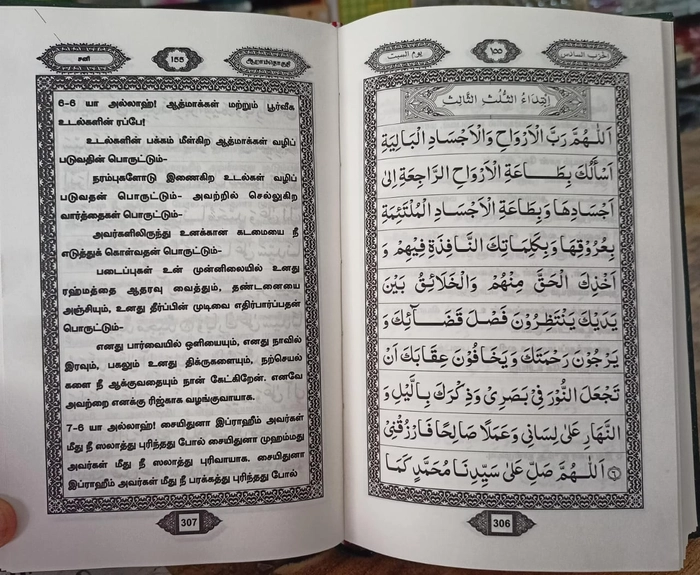 சனி
155
ஆறாம்தொகுதி
6-6 யா அல்லாஹ்! ஆத்மாக்கள் மற்றும் பூர்வீக
உடல்களின் ரப்பே!
உடல்களின் பக்கம் மீள்கிற ஆத்மாக்கள் வழிப்
படுவதின் பொருட்டும்-
நரம்புகளோடு இணைகிற உடல்கள் வழிப்
படுவதன் பொருட்டும்- அவற்றில் செல்லுகிற
வார்த்தைகள் பொருட்டும்-
அவர்களிலிருந்து உனக்கான கடமையை நீ
எடுத்துக் கொள்வதன் பொருட்டும்-
படைப்புகள் உன் முன்னிலையில் உனது
ரஹ்மத்தை ஆதரவு வைத்தும், தண்டனையை
அஞ்சியும், உனது தீர்ப்பின் முடிவை எதிர்பார்ப்பதன்
பொருட்டும்-
எனது பார்வையில் ஒளியையும், எனது நாவில்
இரவும், பகலும் உனது திக்ருகளையும், நற்செயல்
களை நீ ஆக்குவதையும் நான் கேட்கிறேன். எனவே
அவற்றை எனக்கு ரிஜ்காக வழங்குவாயாக.
7-6 யா அல்லாஹ்! சையிதுனா இப்ராஹீம் அவர்கள்
மீது நீ ஸலாத்து புரிந்தது போல் சையிதுனா முஹம்மது
அவர்கள் மீது நீ ஸலாத்து புரிவாயாக. சையிதுனா
இப்ராஹீம் அவர்கள் மீது நீ பரக்கத்து புரிந்தது போல்
307
حزب السادس
١٥٥
يوم السبت
اِبْتِدَاءُ الثُّلُثِ الثَّالِثِ
اَللّٰهُمَّ رَبَّ الْاَرْوَاحِ وَالْاَجْسَادِ الْبَالِيَةِ
اَسْأَلُكَ بِطَاعَةِ الْاَرْوَاحِ الرَّاجِعَةِ اِلٰى
اَجْسَادِهَا وَبِطَاعَةِ الْاَجْسَادِ الْمُلْتَئِمَةِ
بِعُرُوْقِهَا وَبِكَلِمَاتِكَ النَّافِذَةِ فِيْهِمْ وَ
اَخْذِكَ الْحَقَّ مِنْهُمْ وَالْخَلَائِقُ بَيْنَ
يَدَيْكَ يَنْتَظِرُوْنَ فَصْلَ قَضَآئِكَ وَ
يَرْجُوْنَ رَحْمَتَكَ وَيَخَافُوْنَ عِقَابَكَ اَنْ
تَجْعَلَ النُّوْرَ فِيْ بَصَرِيْ وَذِكْرَكَ بِالَّيْلِ وَ
النَّهَارِ عَلٰى لِسَانِيْ وَعَمَلًا صَالِحًا فَارْزُقْنِيْ
٦ اَللّٰهُمَّ صَلِّ عَلٰى سَيِّدِنَا مُحَمَّدٍ كَمَا
306